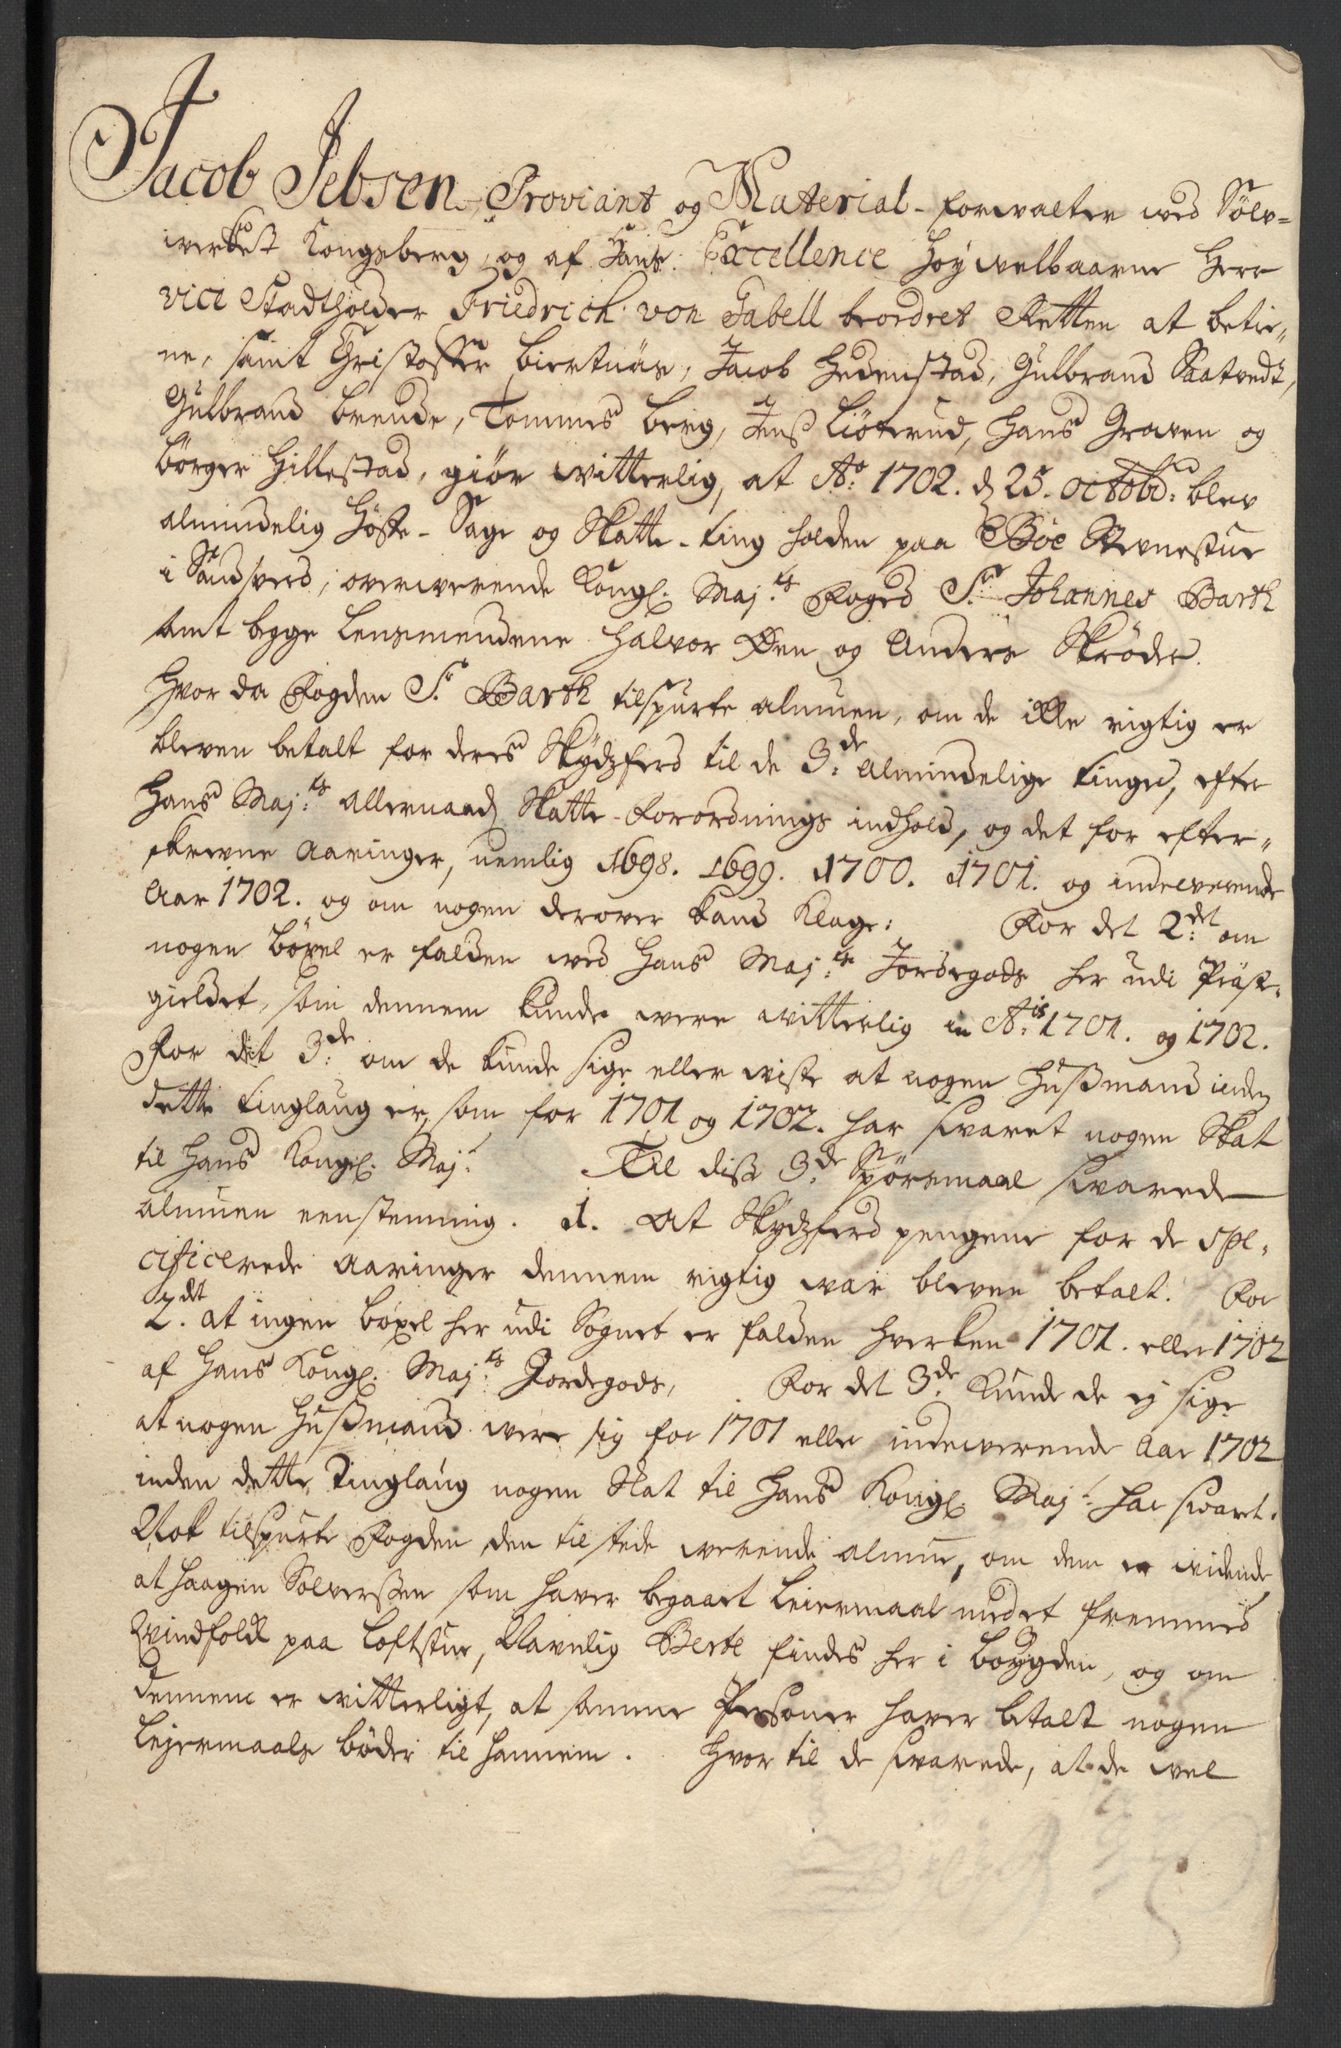 Jacob Jebsen Proviant og Material-forwalter wed Sølv-
werket Kongsberg, og af Hans Excellence Høywelbaarne Herr
vice Stadtholder Friedrich von Gabell beordret Retten at betie-
ne, samt Christoffer Biertnæs, Jacob Hedenstad, Gulbrand Saatvedt,
Gulbrand brende, Tommes berg, Jens Liøterud, Hans Graven og
børger Hillestad, giør witterlig, at A:o 1702. d. 25. octobr: blev
almindelig Høste-Sage og Skatte-ting holden paa Bøe Stevnestue
i Sandsverd, overwerende Kongl. Maj:ts Foged Sr. Johannes Barth
samt begge Lensmendene Halvor Øen og Anders Skrøder.
Hvor da Fogden Sr. Barth tilspurte almuen, om de ikke rigtig er
bleven betalt for deres Skydsferd til de 3:de almindelige tinge, efter
Hans Maj:ts allernaad. Skatte-forordnings indhold, og det for efter-
skrevne aaringer, nemlig 1698. 1699. 1700. 1701. og indewerende
Aar 1702. og om nogen derover kand klage: For det 2:det om
nogen bøxel er falden wed Hans Maj:ts Jordegods her udi Præste-
gieldet, som dennem kunde were witterlig in A:is 1701. og 1702.
For det 3:de om de kunde sige eller wiste at nogen Husmand inden
dette tinglaug er, som for 1701 og 1702. har swaret nogen Skat
til Hans Kongl. Maj:t Til disse 3:de Spørsmaal swarede
almuen eenstemmig. 1. At Skydsferd pengene for de spe-
cificerede aaringer dennem rigtig war bleven betalt. For
2:det at ingen bøxel her udi Sognet er falden hverken 1701. eller 1702
af Hans Kongl. Maj:ts Jordegods, For det 3:de kunde de ej sige
at nogen Husmand were sig for 1701 eller indewerende Aar 1702
inden dette Tinglaug nogen Skat til Hans Kongl. Maj:t har swaret.
Nok tilspurte Fogden den tilstede werende almue, om dem er widende
at Haagen Solversen som haver begaaet Leiermaal med et fremmed
Qvindfolk paa Loftstue, Navnlig Berte findes her i bøygden, og om
dennem er witterligt, at samme Personer haver betalt nogen
Lejermaals bøder til hannem. Hvortil de swarede, at de wel